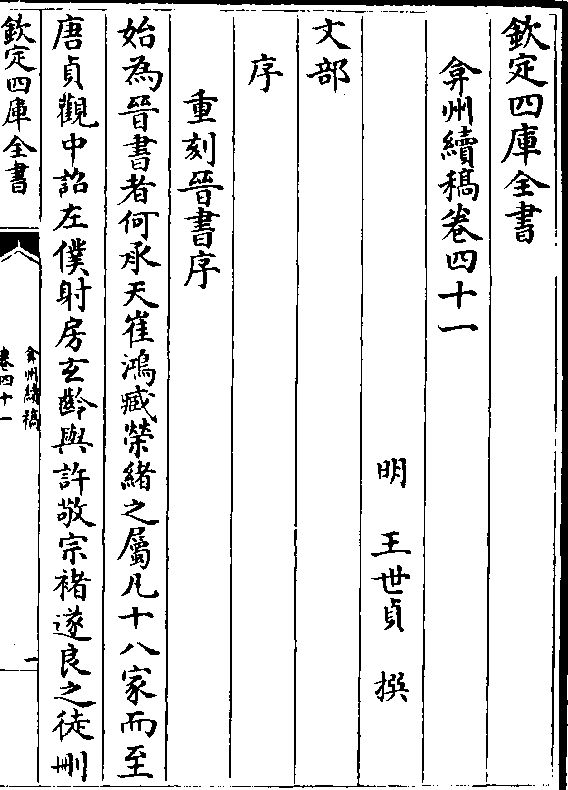 欽定四庫全書
弇州續稿卷四十一
明 王世貞 撰
文部
序
重刻晉書序
始為晉書者何承天崔鴻臧榮緒之屬凡十八家而至
唐貞觀中詔左僕射房玄齡與許敬宗褚遂良之徒刪
欽定四庫全書
弇州續稿
卷四十一
一